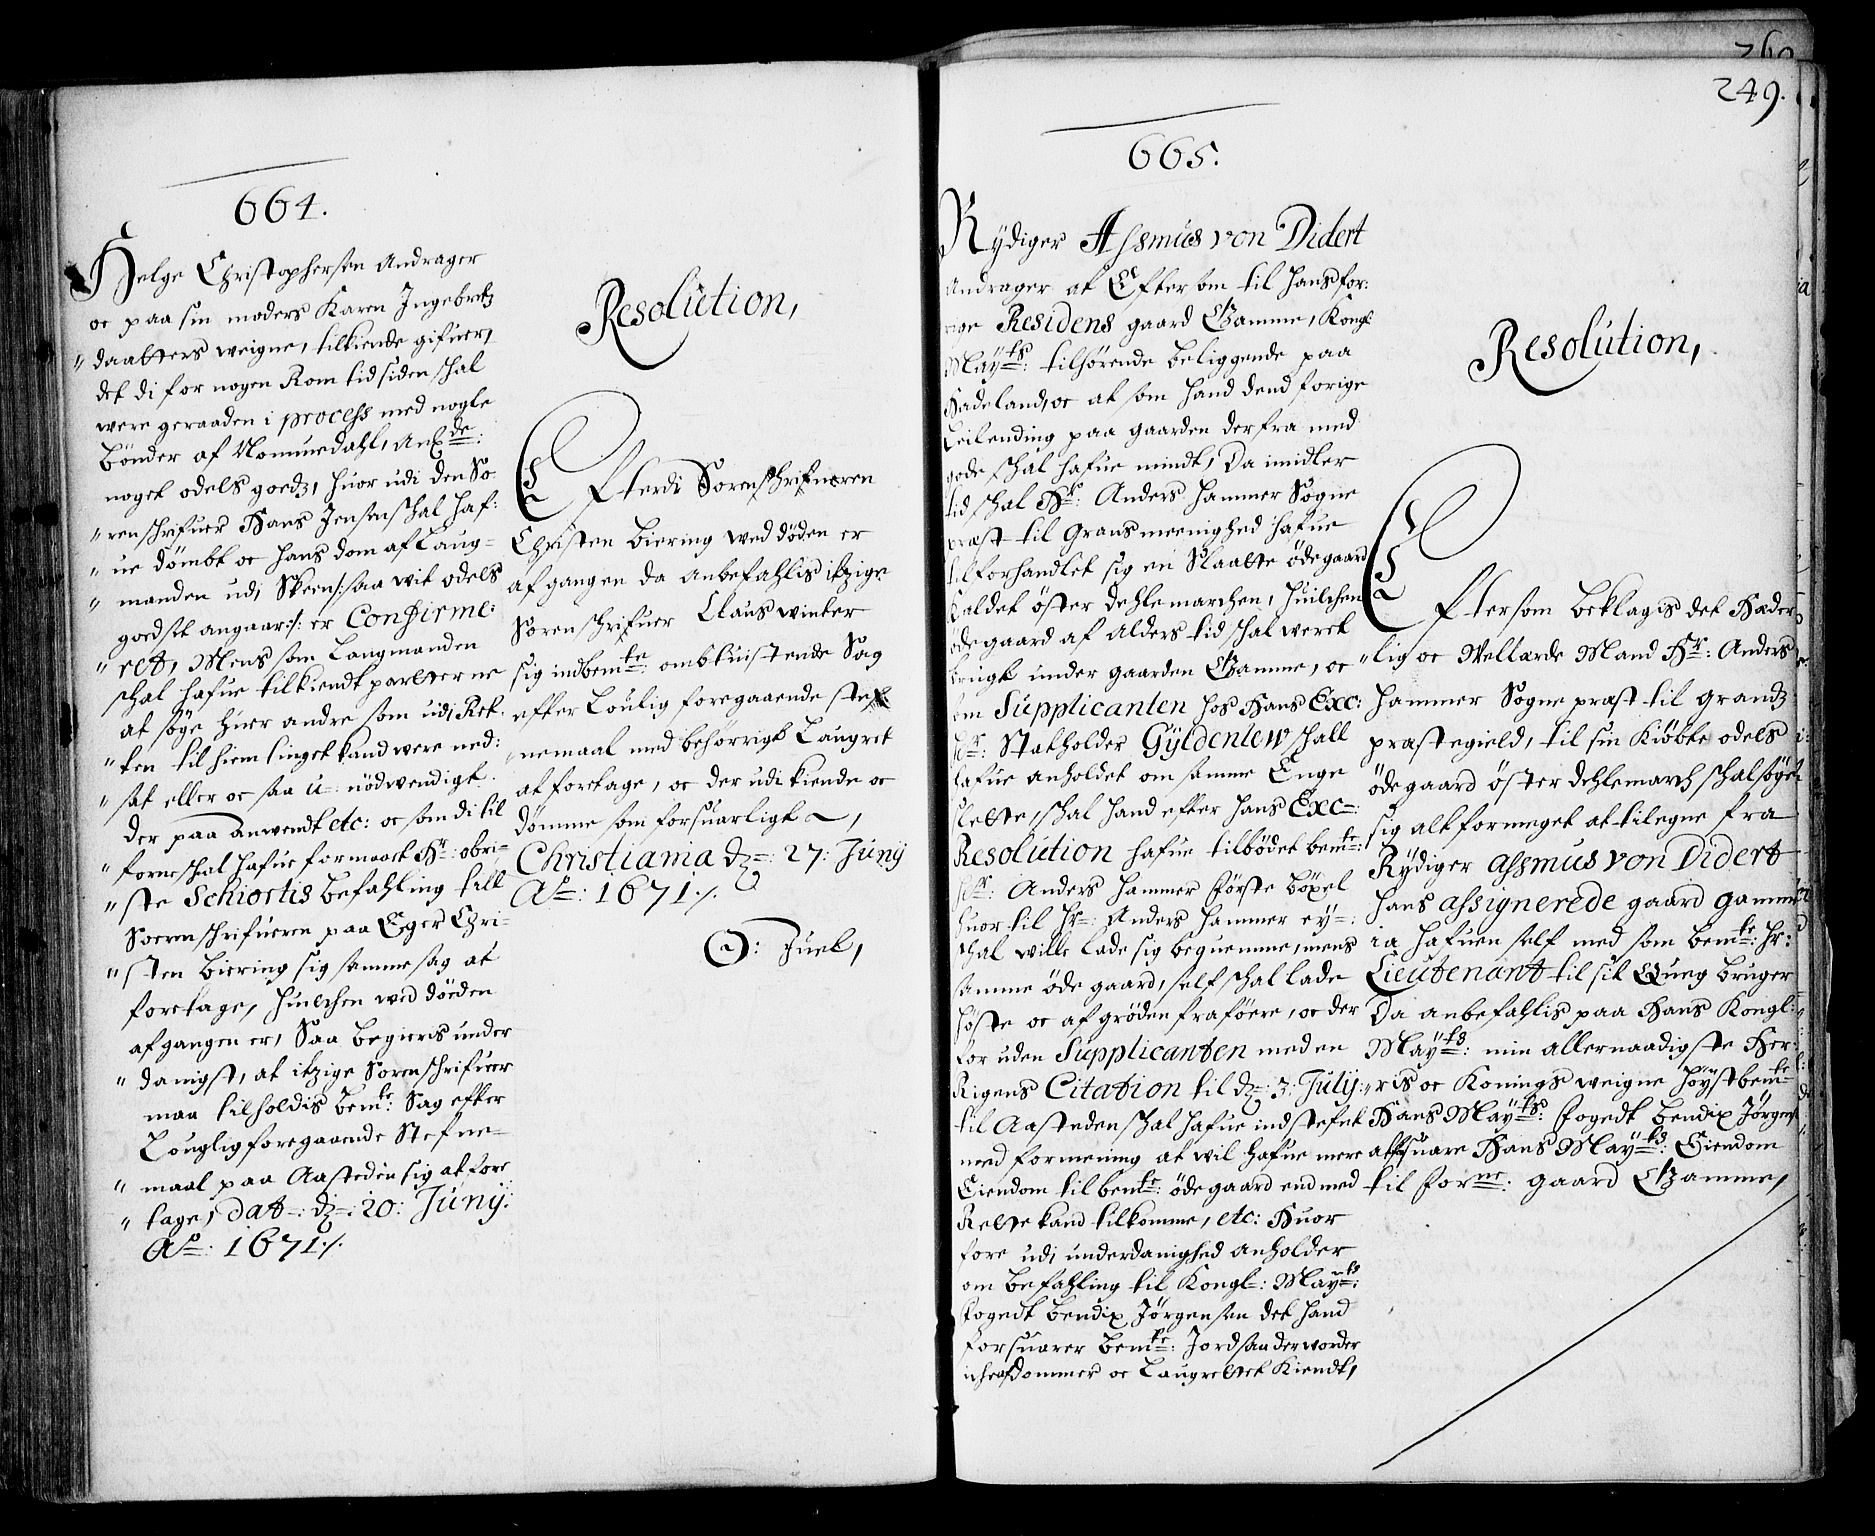 664.
Helge Christophersen Andrager
oc paa sin moders Karen Ingebretz
daatters weigne, tilkiende gifuer,
det di for nogen Rom tid siden schal
were geraaden i process med nogle
Bönder af Nommedahl, Anl:de:
noget odels goedz, huor udi den So
renschrifuer Hans Jensen schal haf:
ue dömbt oc hans dom af Laug-
manden udj Skeen /: saa wit odels
goedset angaar :/: er Confirme:
ret, Mens som Laugmanden
schal hafue tilkiendt parterne
at söge huer andre som udj Ret.
ten til hiemtinget kand were ned:
sat eller oc saa u=: nödwendigt
der paa anwendt etc: oc som di til
forne schal hafue formaaet Hr: obri-
ste Schiortis befahling till
Sorenschrifueren paa Eger Chri-
sten Biering sig samme sag at
foretage, huilchen wed döden
afgangen er, Saa begieris under
danigst, at itzige Sorenschrifuer
maa tilholdis bemte: Sag efter
Louglig foregaaende Stefne-
maal paa Aasteden sig at fore
tage, dat=: dz=: 20: Junij:
Ao: 1671 ./.
Resolution,
Efterdi Sorenschrifueren
Christen Biering wed döden er
afgangen da anbefahlis itzige
Sorenschrifuer Claus winter
sig indbemte ombtuistende Sag
efter Loulig foregaaende stef
nemaal med behörrigt Laugret
at foretage, oc der udi kiende oc
dömme som forsuarligt ,
Christiania dz=: 27: Junij
Ao: 1671 ./.
O: Juel,
249.
665.
Rÿdiger Assmus von Didert
Andrager at Efter som til hans for:
rige Residens gaard Gamme, Kongl
Mayts: tilhörende beliggende paa
Hadeland, oc at som hand dend forige
Leilending paa gaarden derfra med
gode schal hafue mindt, Da imidler
tid schal Hr: Anders Hammer Sogne
præst til Grans meenighed hafue
tilforhandlet sig en Slaatte ödegaard
kaldet öster dehlemarchen, huilchen
ödegaard af Alders tid schal weret
brugt under gaarden Gamme, oc
som Supplicanten hos Hans Exc:
Hr: Statholder Gÿldenlew schall
hafue anholdet om samme Enge
slette, schal hand efter hans Exc=:
Resolution hafue tilbödet bemte:
Hr: Anders Hammer förste böxel
huor til Hr=: Anders Hammer eÿ=:
schal wille lade sig beqvemme, mens
samme ödegaard, self schal lade
höste oc afgröden fraföere, oc der
for uden Supplicanten med en
Rigens Citation til dz=: 3: Julÿ:
til Aasteden schal hafue indstefnet
med formening at wil hafue mere
Eiendom til bemte: ödegaard end med
Rette kand tilkomme, etc: Huor
fore udj underdanighed anholder
om befahling til Kongl=: Mayts:
fogedt Bendix Jörgensen det hand
forsuarer bemte: Jord saa der worder
iche afdommer oc Laugrettet Kiendt,
Resolution,
Eftersom beklagis det Hæder
lig oc Vellærde Mand Hr: Anders
Hammer Sogne præst til grandz
præstegield, til sin Kiöbte odels
ödegaard öster dehlemarch schal söge
sig alt formeget at tilegne fra
Rÿdiger assmus von Didert
hans assignerede gaard gamme
ia hafuen self med som bemte: Hr:
Lieutenant til sit Queg bruger
Da anbefahlis paa Hans Kongl:
Mayts: min allernaadigste Her:
ris oc Konings weigne höÿstbemte
Hans Mayts: fogedt Bendix Jörgens
at forsuare Hans Mayts: Eiendom
til forne: gaard Gamme,